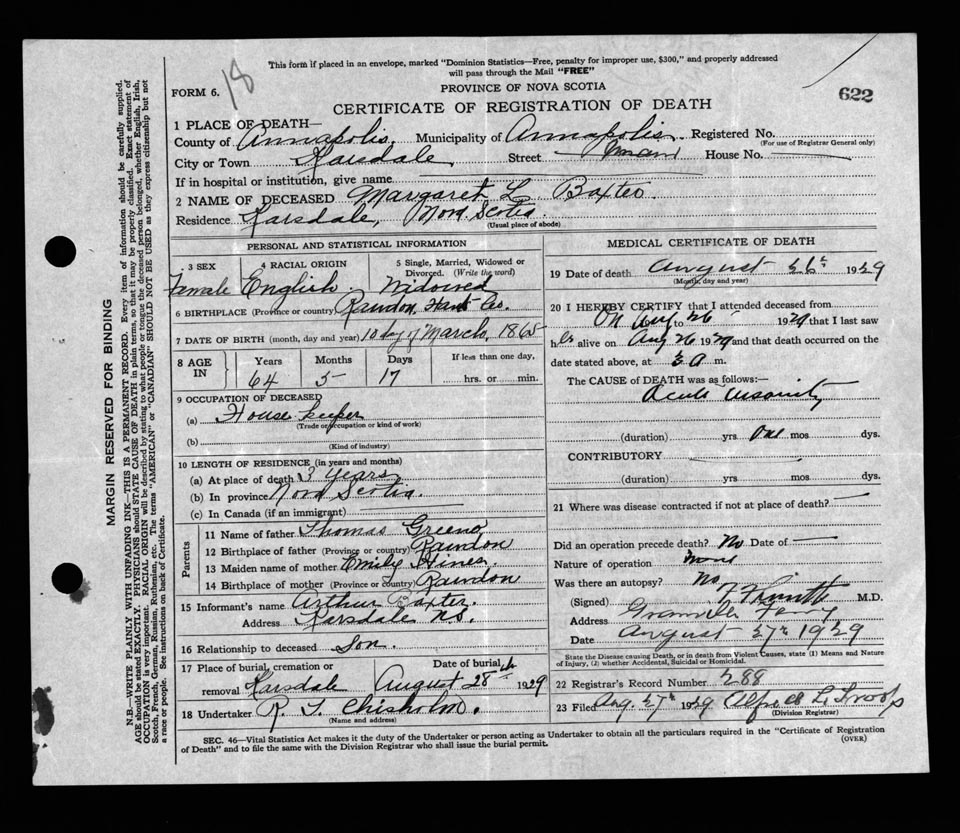 This form if placed in an envelope, marked "Dominion Statistics—Free, penalty for improper use, $300," and properly addressed
will pass through the Mail "FREE"
18
FORM 6.
PROVINCE OF NOVA SCOTIA
622
CERTIFICATE OF REGISTRATION OF DEATH
1 PLACE OF DEATH—
County of Annapolis. Municipality of Annapolis. Registered No.
(For use of Registrar General only)
City or Town Karsdale Street Main House No.
If in hospital or institution, give name
2 NAME OF DECEASED Margaret L. Baxter.
Residence Karsdale, Nova Scotia.
(Usual place of abode)
PERSONAL AND STATISTICAL INFORMATION
3 SEX 4 RACIAL ORIGIN 5 Single, Married, Widowed or Divorced. (Write the word)
Female English Widowed
6 BIRTHPLACE (Province or country) Rawdon, Hants Co.
7 DATE OF BIRTH (month, day and year) 10 day of March, 1865
8 AGE IN Years Months Days If less than one day,
64 5 17 hrs. or min.
9 OCCUPATION OF DECEASED
(a) House keeper
(Trade or occupation or kind of work)
(b)
(Kind of industry)
10 LENGTH OF RESIDENCE (in years and months)
(a) At place of death 3 Years
(b) In province Nova Scotia.
(c) In Canada (if an immigrant)
Parents
11 Name of father Thomas Greeno
12 Birthplace of father (Province or country) Rawdon
13 Maiden name of mother Emily Hines.
14 Birthplace of mother (Province or country) Rawdon
15 Informant's name Arthur Baxter.
Address Karsdale N.S.
16 Relationship to deceased Son.
17 Place of burial, cremation or Date of burial
removal Karsdale August 28th 1929
18 Undertaker R. S. Chisholm.
(Name and address)
MEDICAL CERTIFICATE OF DEATH
19 Date of death August 26th 1929
(Month, day and year)
20 I HEREBY CERTIFY that I attended deceased from
On Aug to 26 1929 that I last saw
her alive on Aug 26 1929 and that death occurred on the
date stated above, at a m.
The CAUSE of DEATH was as follows:—
Acute
(duration) yrs One mos dys.
CONTRIBUTORY
(duration) yrs mos dys.
21 Where was disease contracted if not at place of death?
Did an operation precede death? No Date of
Nature of operation None
Was there an autopsy? No
(Signed) M.D.
Address Granville Ferry
Date August 27th 1929
State the Disease causing Death, or in death from Violent Causes, state (1) Means and Nature
of Injury, (2) whether Accidental, Suicidal or Homicidal.
22 Registrar's Record Number 288
23 Filed Aug. 27th 1929 Alfred L.
(Division Registrar)
SEC. 46—Vital Statistics Act makes it the duty of the Undertaker or person acting as Undertaker to obtain all the particulars required in the "Certificate of Registration
of Death" and to file the same with the Division Registrar who shall issue the burial permit.
(OVER)
MARGIN RESERVED FOR BINDING
N.B.—WRITE PLAINLY WITH UNFADING INK—THIS IS A PERMANENT RECORD. Every item of information should be carefully supplied.
AGE should be stated EXACTLY. PHYSICIANS should STATE CAUSE OF DEATH in plain terms, so that it may be properly classified. Exact statement of
OCCUPATION is very important. RACIAL ORIGIN will be described by stating to what people or tongue the deceased person belonged, whether English, Irish,
Scotch, French, German, Russian, Ruthenian, etc. The terms "AMERICAN" or "CANADIAN" SHOULD NOT BE USED as they express citizenship but not
a race or people. See instructions on back of Certificate.